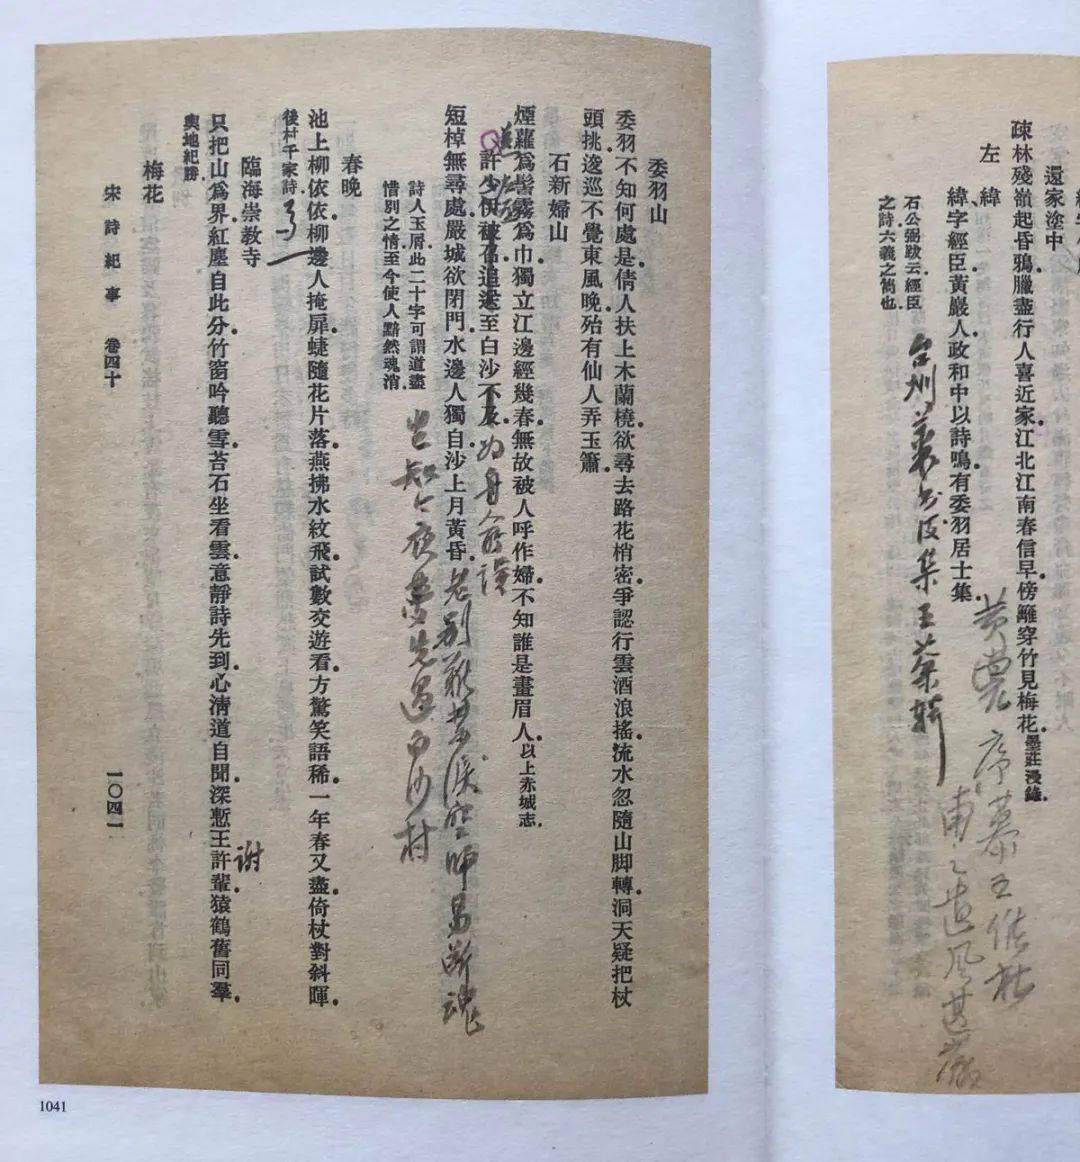 還家塗中
疎林殘嶺起昏鴉臘盡行人喜近家江北江南春信早傍籬穿竹見梅花墨莊漫錄
左緯
緯字經臣黃巖人政和中以詩鳴有委羽居士集
石公弼跋云經臣
之詩六義之髓也
委羽山
委羽不知何處是倩人扶上木蘭橈欲尋去路花梢密爭認行雲酒浪搖流水忽隨山脚轉洞天疑把杖
頭挑逡巡不覺東風晚殆有仙人弄玉簫
石新婦山
煙蘿爲髻霧爲巾獨立江邊經幾春無故被人呼作婦不知誰是畫眉人以上赤城志
許少伊被召追送至白沙不及
為舟人所誤
短棹無尋處嚴城欲閉門水邊人獨自沙上月黃昏
老別難禁淚空歸易斷魂
豈知今夜夢先過白沙村
詩人玉屑此二十字可謂道盡
惜別之情至今使人黯然魂消
春晚
池上柳依依柳邊人掩扉蜨隨花片落燕拂水紋飛試數交遊看方驚笑語稀一年春又盡倚杖對斜暉
後村千家詩
臨海崇教寺
只把山爲界紅塵自此分竹窗吟聽雪苔石坐看雲意靜詩先到心淸道自聞深慙王許輩猿鶴舊同羣
謝
輿地紀勝
梅花
宋詩紀事 卷四十
一〇四一
1041